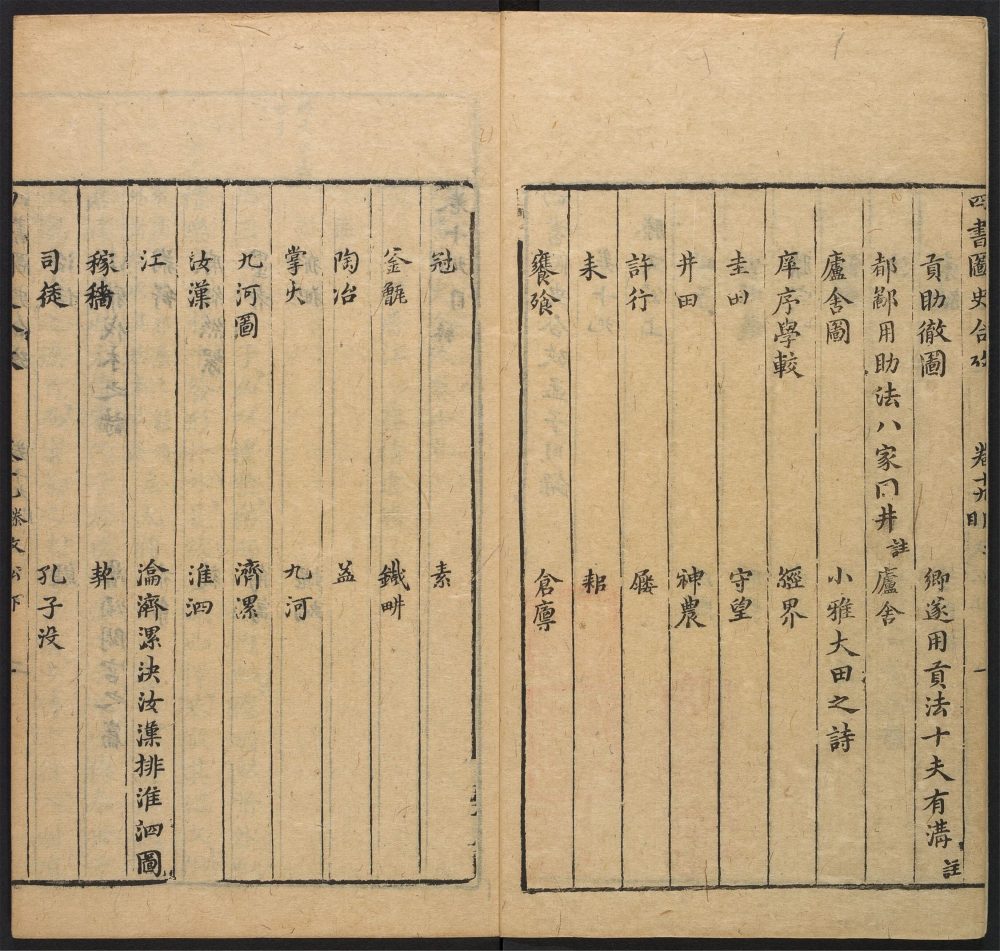 四書圖史合攷 卷十九目
貢助徹圖 鄉遂用貢法十夫有溝註
都鄙用助法八家同井註 廬舍
廬舍圖 小雅大田之詩
庠序學較 經界
圭田 守望
井田 神農
許行 屨
耒 耜
饔飱 倉廩
冠 素
釜甑 鐵畊
陶冶 益
掌火 九河
九河圖 濟漯
汝漢 淮泗
江 瀹濟漯決汝漢排淮泗圖
稼穡 契
司徒 孔子没